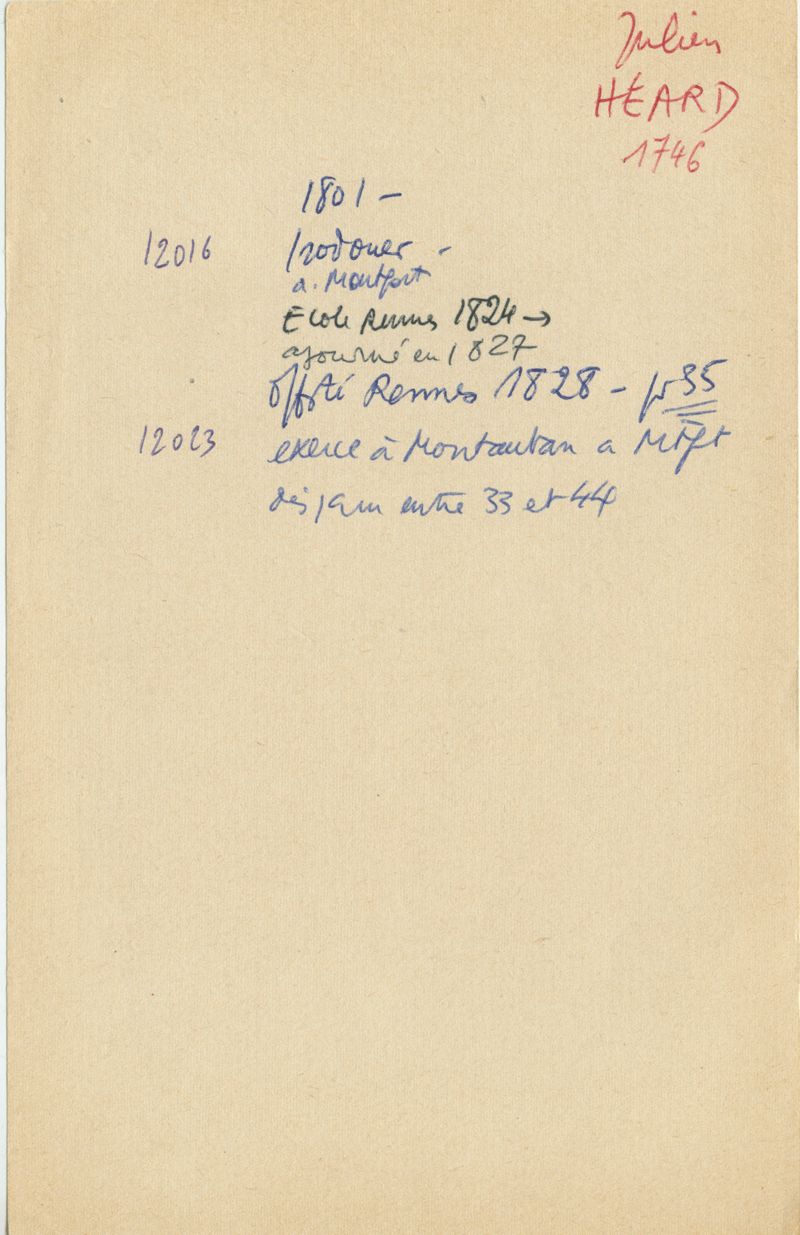 Julien
HÉARD
1746
1801 -
12016 Irodouer -
a. Montfort
Ecole Rennes 1824 →
ajourné en 1827
Rennes 1828 - pr 35
12023 exerce à Montauban a Mtft
entre 33 et 44